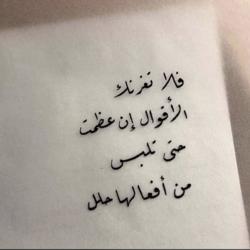 فلا تغرنك
الأقوال إن عظمت
حتى تلبس
من أفعالها حلل